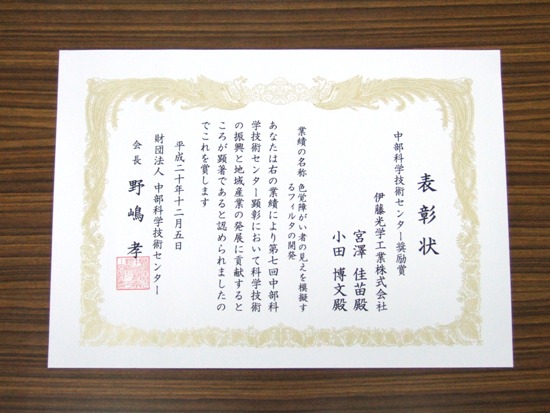 表彰状
中部科学技術センター奨励賞
伊藤光学工業株式会社
宮澤 佳苗殿
小田 博文殿
業績の名称 色覚障がい者の見えを模擬す
るフィルタの開発
あなたは右の業績により第七回中部科
学技術センター顕彰において科学技術
の振興と地域産業の発展に貢献すると
ころが顕著であると認められましたの
でこれを賞します
平成二十年十二月五日
財団法人 中部科学技術センター
会長 野嶋 孝